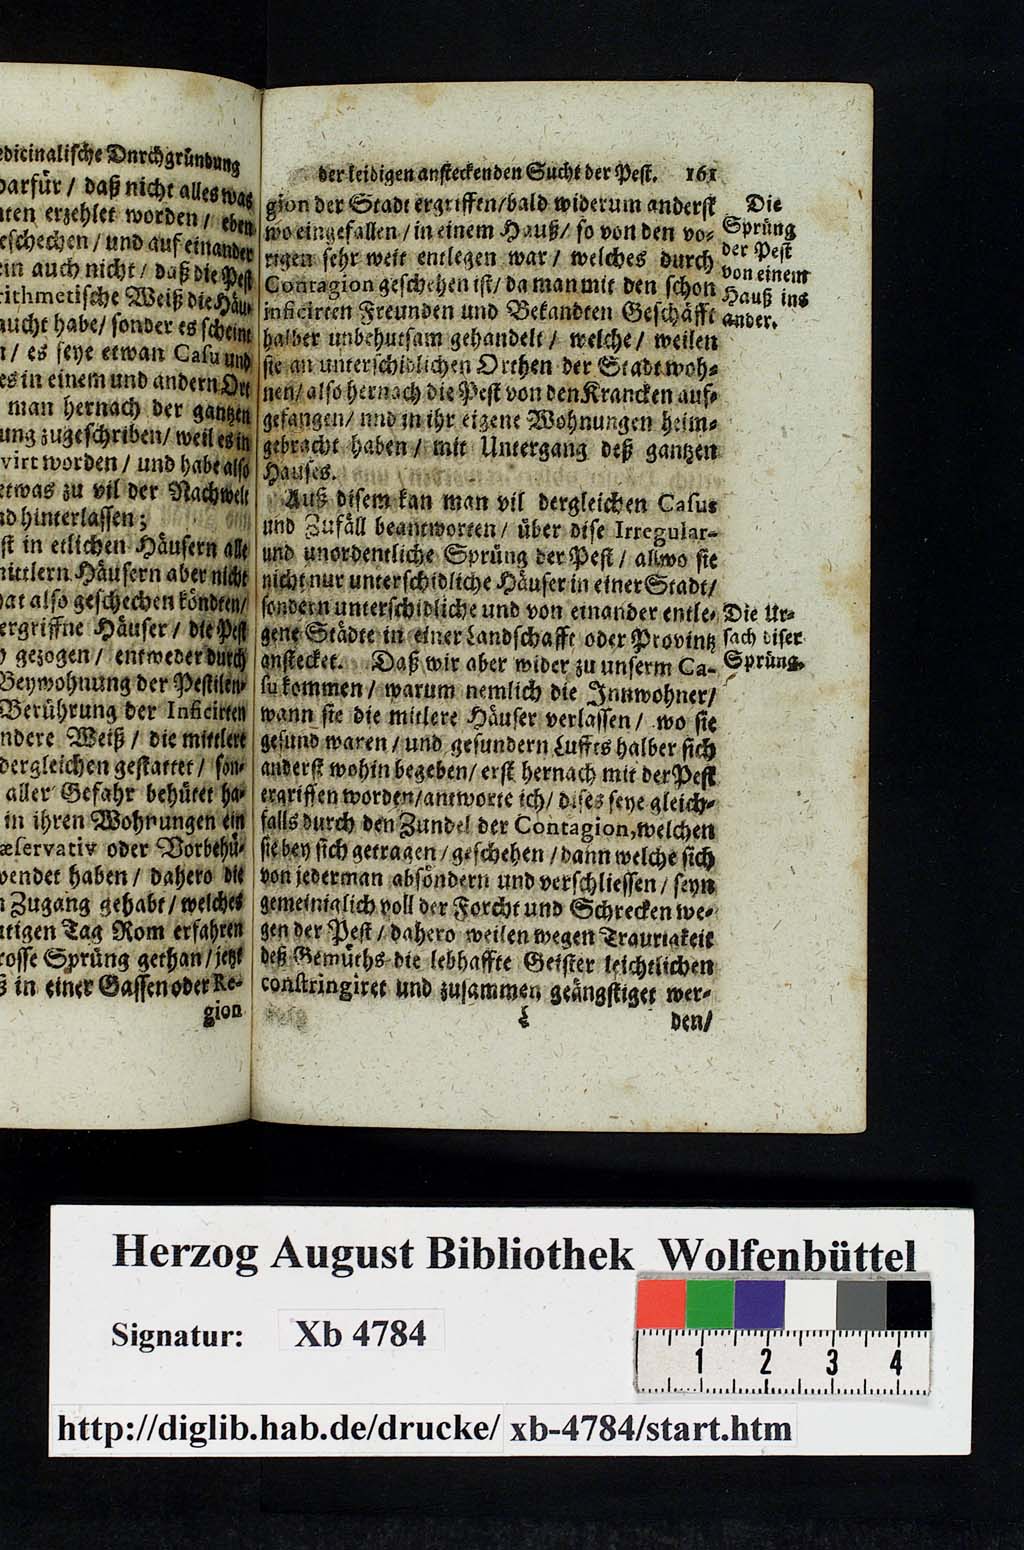 edicinalische Dnrchgründung
darfür / daß nicht alles was
ten erzehlet worden / eben
eschechen / und auf einander
ein auch nicht / daß die Pest
rithmetische Weiß die Häu-
aucht habe / sonder es scheint
n / es seye etwan Casu und
es in einem und andern Ort
man hernach der gantzen
ung zugeschriben / weil es in
virt worden / und habe also
etwas zu vil der Nachwelt
nd hinterlassen;
st in etlichen Häusern alle
mittlern Häusern aber nicht
hat also geschechen köndten /
ergriffne Häuser / die Pest
gezogen / entweder durch
Beywohnung der Pestilen-
Berührung der Inficirten
ndere Weiß / die mittlere
dergleichen gestattet / son-
aller Gefahr behütet ha-
in ihren Wohnungen ein
æservativ oder Vorbehü-
wendet haben / dahero die
n Zugang gehabt / welches
utigen Tag Rom erfahren
rosse Sprüng gethan / jetzt
ß in einer Gassen oder Re-
gion
der leidigen ansteckenden Sucht der Pest. 161
gion der Stadt ergriffen / bald widerum anderst
wo eingefallen / in einem Hauß / so von den vo-
rigen sehr weit entlegen war / welches durch
Contagion geschehen ist / da man mit den schon
inficirten Freunden und Bekandten Geschäfft
halber unbehutsam gehandelt / welche / weilen
sie an unterschidlichen Orthen der Stadt woh-
nen / also hernach die Pest von den Krancken auf-
gefangen / nnd in ihr eigene Wohnungen heim-
gebracht haben / mit Untergang deß gantzen
Hauses.
Auß disem kan man vil dergleichen Casus
und Zufäll beantworten / über dise Irregular-
und unordentliche Sprüng der Pest / allwo sie
nicht nur unterschidliche Häuser in einer Stadt /
sondern unterschidliche und von einander entle-
gene Städte in einer Landschafft oder Provintz
anstecket. Daß wir aber wider zu unserm Ca-
su kommen / warum nemlich die Innwohner /
wann sie die mitlere Häuser verlassen / wo sie
gesund waren / und gesundern Luffts halber sich
anderst wohin begeben / erst hernach mit der Pest
ergriffen worden / antworte ich / dises seye gleich-
falls durch den Zundel der Contagion, welchen
sie bey sich getragen / geschehen / dann welche sich
von jederman absöndern und verschliessen / seyn
gemeiniglich voll der Forcht und Schrecken we-
gen der Pest / dahero weilen wegen Traurigkeit
deß Gemüths die lebhaffte Geister leichtlichen
constringiret und zusammen geängstiget wer-
L den /
Die
Sprüng
der Pest
von einem
Hauß ins
ander.
Die Ur-
sach diser
Sprüng.
Herzog August Bibliothek Wolfenbüttel
Signatur: Xb 4784
1 2 3 4
http://diglib.hab.de/drucke/ xb-4784/start.htm